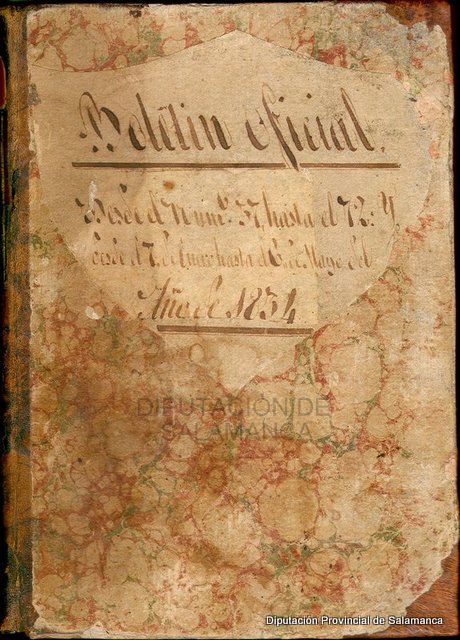 Boletin oficial.
Desde el Num.º 37, hasta el 72: Y
desde el 7. de Enero hasta el 6. de Mayo del
Año de 1834
DIPUTACIÓN DE
SALAMANCA
Diputación Provincial de Salamanca